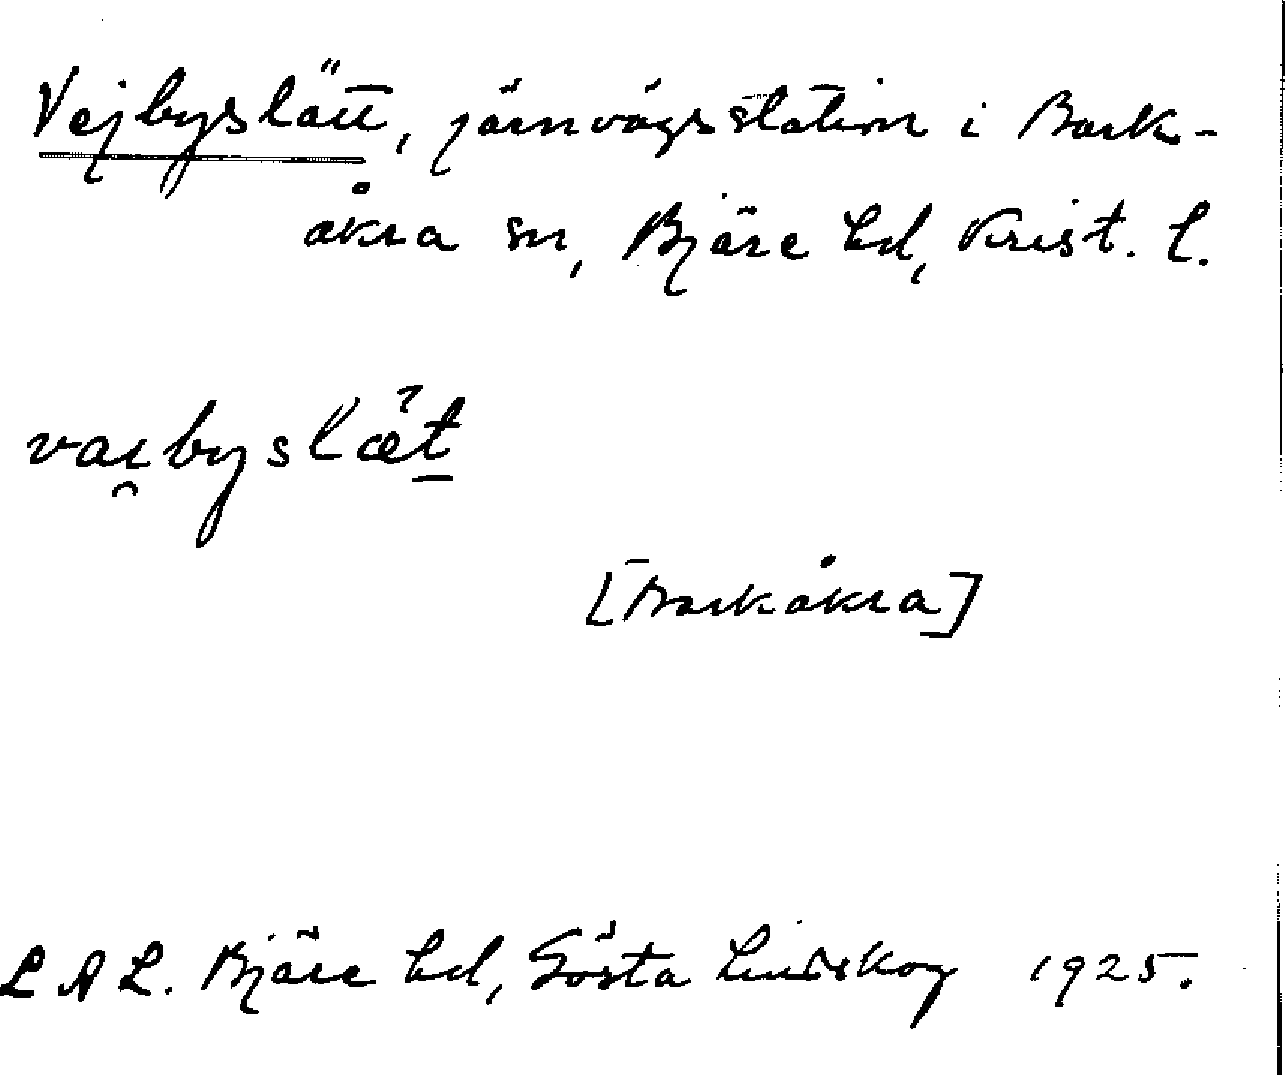 Vejbyslätt, järnvägsstation i Bark-
åkra sn, Bjäre hd, Krist. l.
vai̯byslæ̀t̠
[Barkåkra]
L A L. Bjäre hd, Gösta Lindskog 1925.